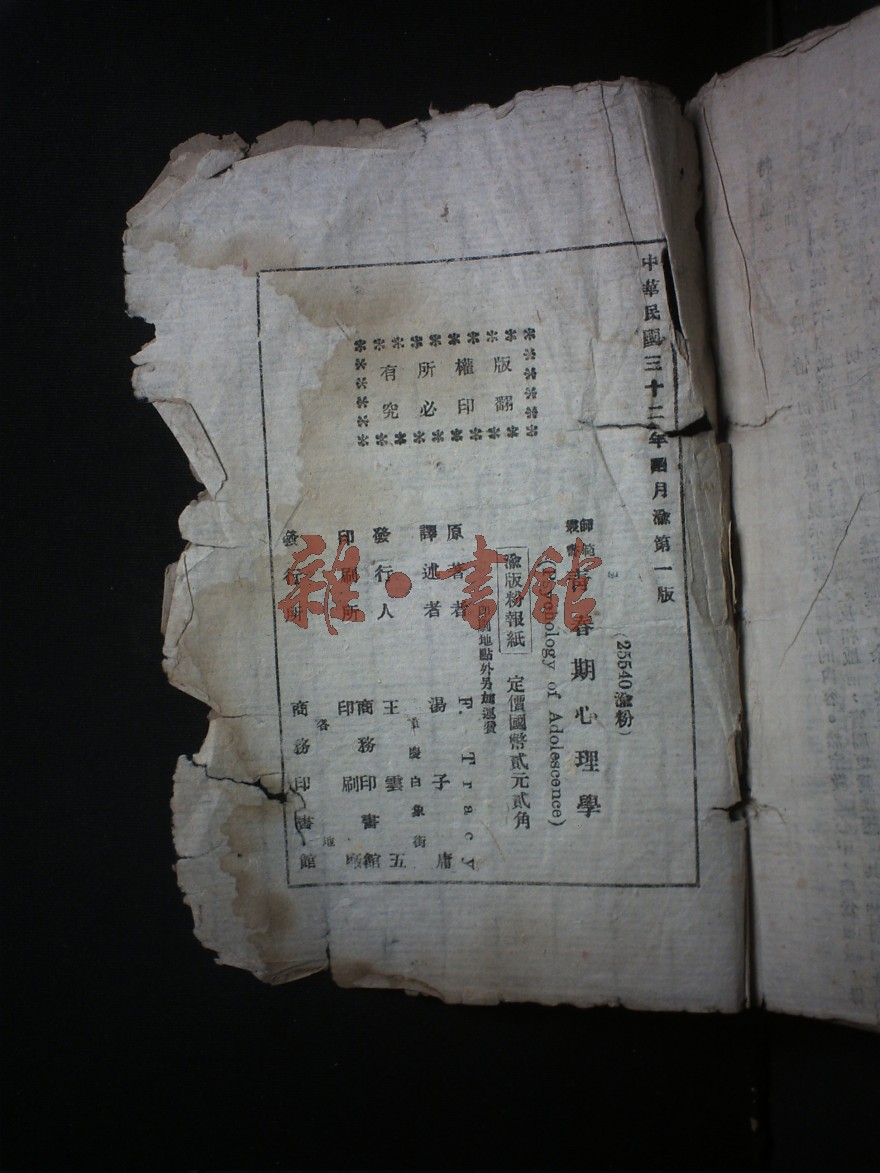 中華民國三十二年四月渝第一版
(25540渝粉)
師範叢書 青春期心理學
(Psychology of Adolescence)
渝版粉報紙 定價國幣貳元貳角
印刷地點外另加運費
原著者 F. Tracy
譯述者 湯子庸
重慶白象街
發行人 王雲五
印刷所 商務印書館
印刷廠
各地
發行所 商務印書館
版權所有
翻印必究
雜·書館